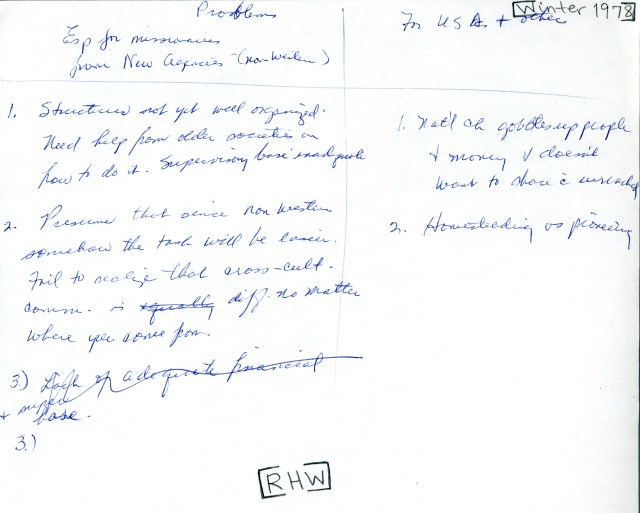 Winter 1978
Problems
Esp for missionaries
from New Agencies - (non Western)
For USAs + other
1. Structures not yet well organized.
Need help from older societies on
how to do it. Supervisory base inadequate
2. Presume that since non western
somehow the task will be easier.
Fail to realize that cross-cult.
comm. is equally diff. no matter
where you come from.
3.) Lack of adequate financial
+ base.
3.)
1. Nat'l ch gobbles up people
+ money & doesn't
want to share c unreached
2. Homesteading vs pioneering
RHW